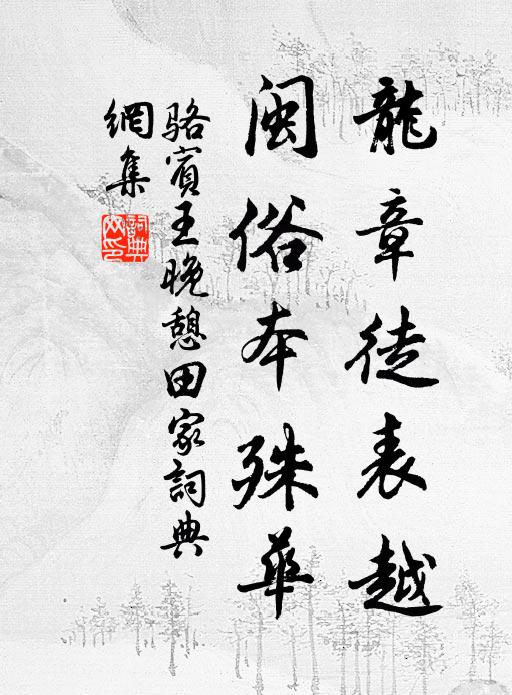 龍章徒表越
閩俗本殊華
駱賓王晚憩田家詞典
網集
詞典網印